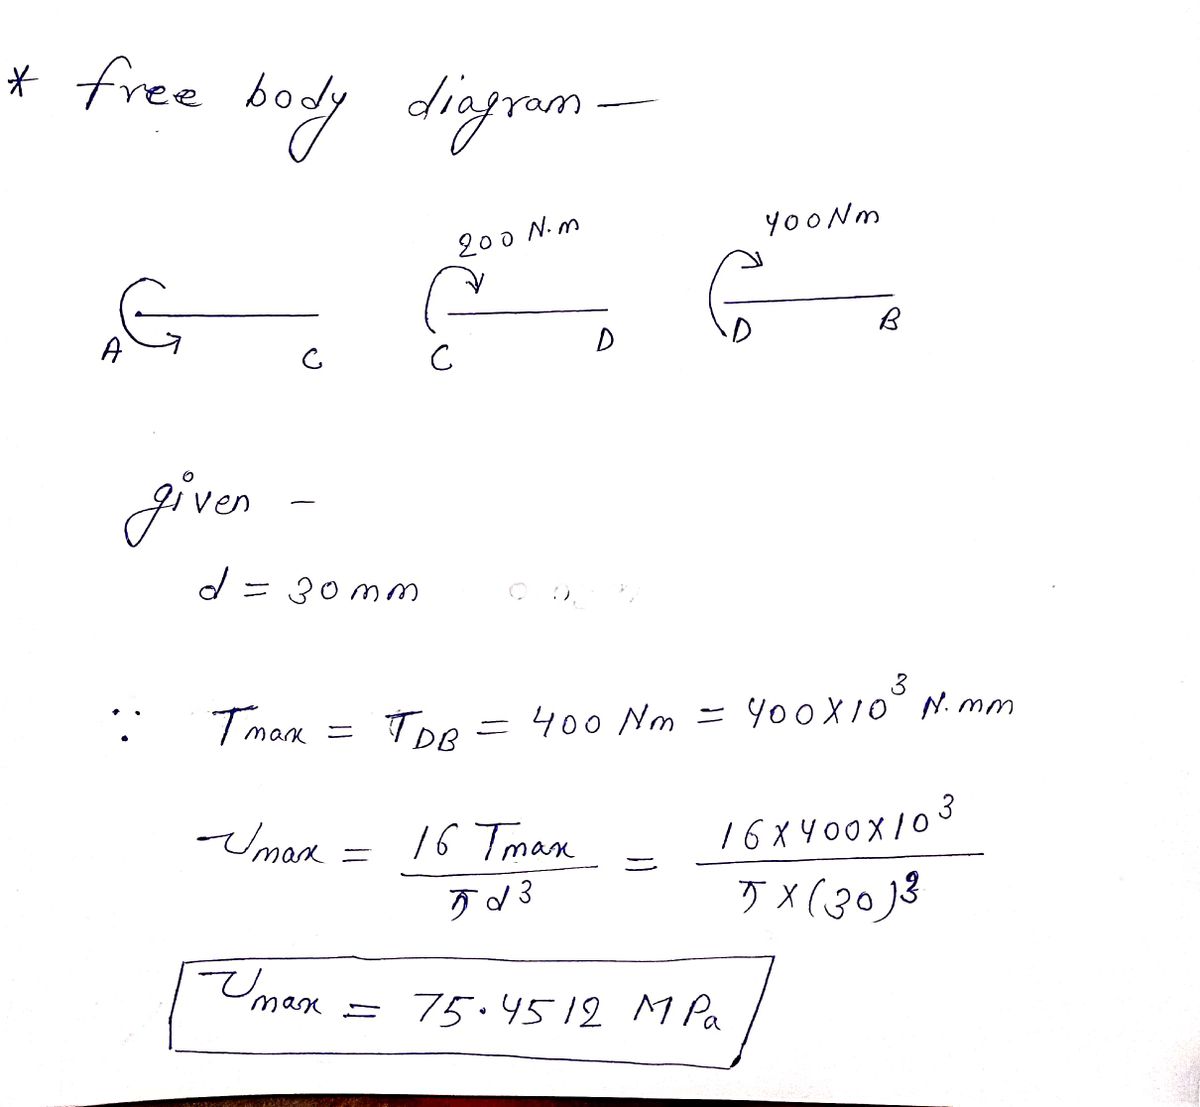 * free body diagram —
200 N.m
400 Nm
A C
C D
D B
given –
d = 30 mm
∵ Tmax = TDB = 400 Nm = 400 X 10³ N.mm
τmax = 16 Tmax / πd³ = 16 X 400 X 10³ / π X (30)³
τmax = 75.4512 MPa